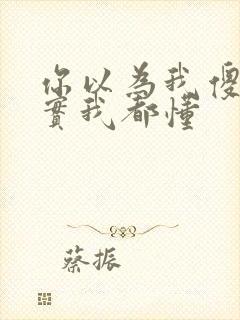 你以為我傻
實我都懂
蔡振